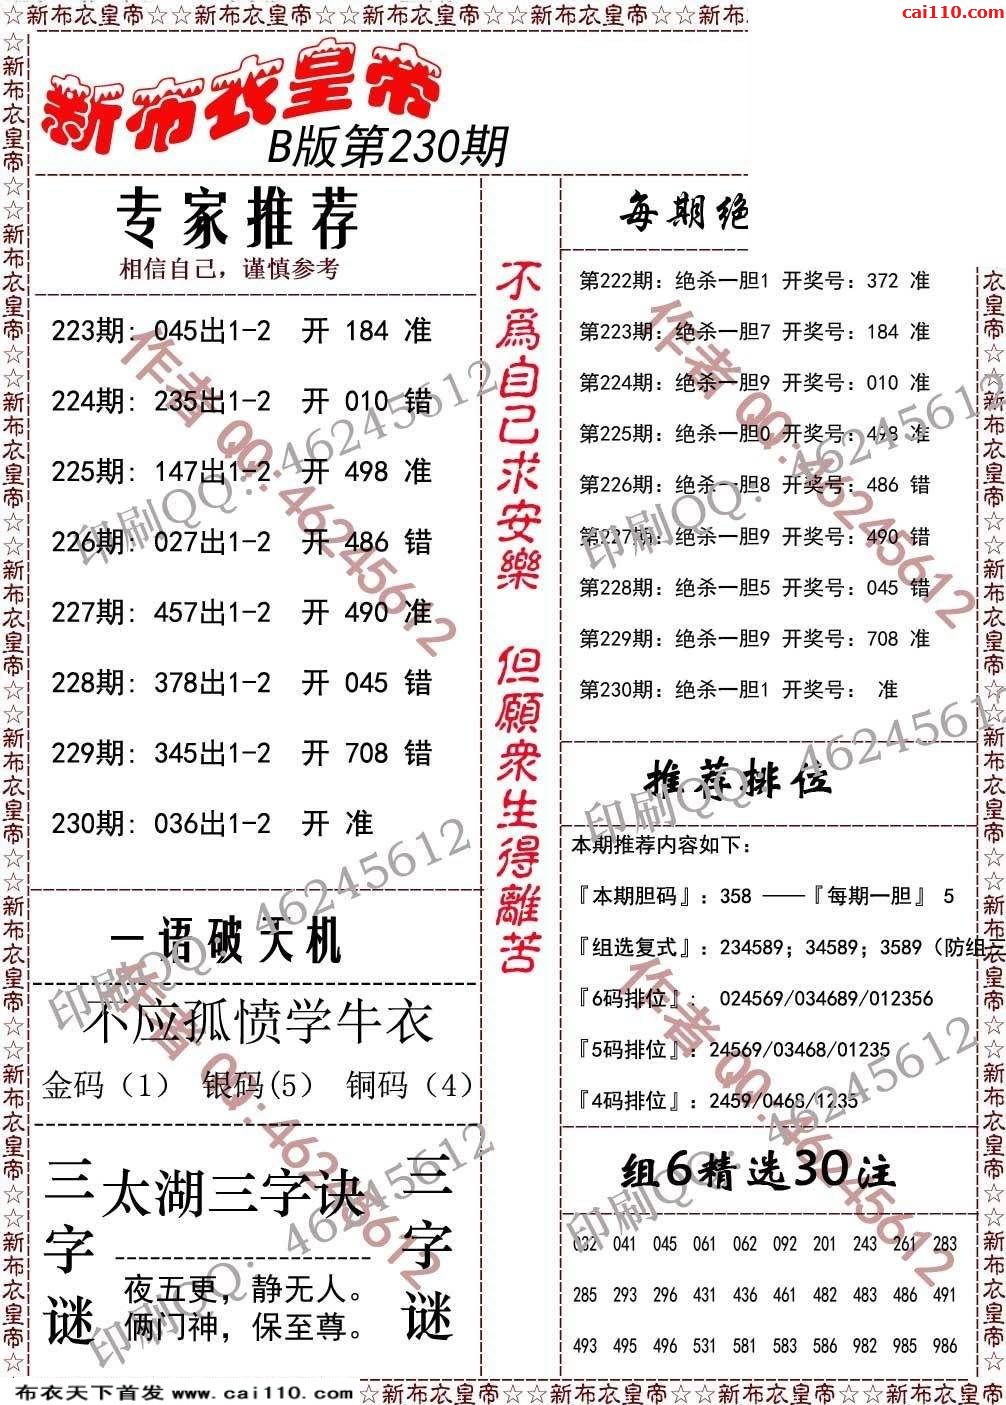 ☆新布衣皇帝☆☆新布衣皇帝☆☆新布衣皇帝☆☆新布衣皇帝☆☆新布
cai110.com
新布衣皇帝
B版第230期
专家推荐
相信自己，谨慎参考
223期: 045出1-2 开 184 准
224期: 235出1-2 开 010 错
225期: 147出1-2 开 498 准
226期: 027出1-2 开 486 错
227期: 457出1-2 开 490 准
228期: 378出1-2 开 045 错
229期: 345出1-2 开 708 错
230期: 036出1-2 开 准
一语破天机
不应孤愤学牛衣
金码（1） 银码(5) 铜码（4）
三字谜
太湖三字诀
夜五更，静无人。
俩门神，保至尊。
三字谜
不爲自己求安樂 但願衆生得離苦
每期绝
第222期: 绝杀一胆1 开奖号: 372 准
第223期: 绝杀一胆7 开奖号: 184 准
第224期: 绝杀一胆9 开奖号: 010 准
第225期: 绝杀一胆0 开奖号: 498 准
第226期: 绝杀一胆8 开奖号: 486 错
第227期: 绝杀一胆9 开奖号: 490 错
第228期: 绝杀一胆5 开奖号: 045 错
第229期: 绝杀一胆9 开奖号: 708 准
第230期: 绝杀一胆1 开奖号: 准
推荐排位
本期推荐内容如下:
『本期胆码』: 358 ——『每期一胆』 5
『组选复式』: 234589; 34589; 3589（防组三
『6码排位』: 024569/034689/012356
『5码排位』: 24569/03468/01235
『4码排位』: 2459/0468/1235
组6精选30注
032 041 045 061 062 092 201 243 261 283
285 293 296 431 436 461 482 483 486 491
493 495 496 531 581 583 586 982 985 986
作者 QQ:46245612
印刷QQ: 46245612
作者 QQ:46245612
印刷QQ: 46245612
作者 QQ:46245612
印刷QQ: 46245612
作者 QQ:46245612
印刷QQ: 46245612
印刷QQ: 46245612
印刷QQ: 46245612
布衣天下首发 www.cai110.com ☆新布衣皇帝☆☆新布衣皇帝☆☆新布衣皇帝☆☆新布衣皇帝☆